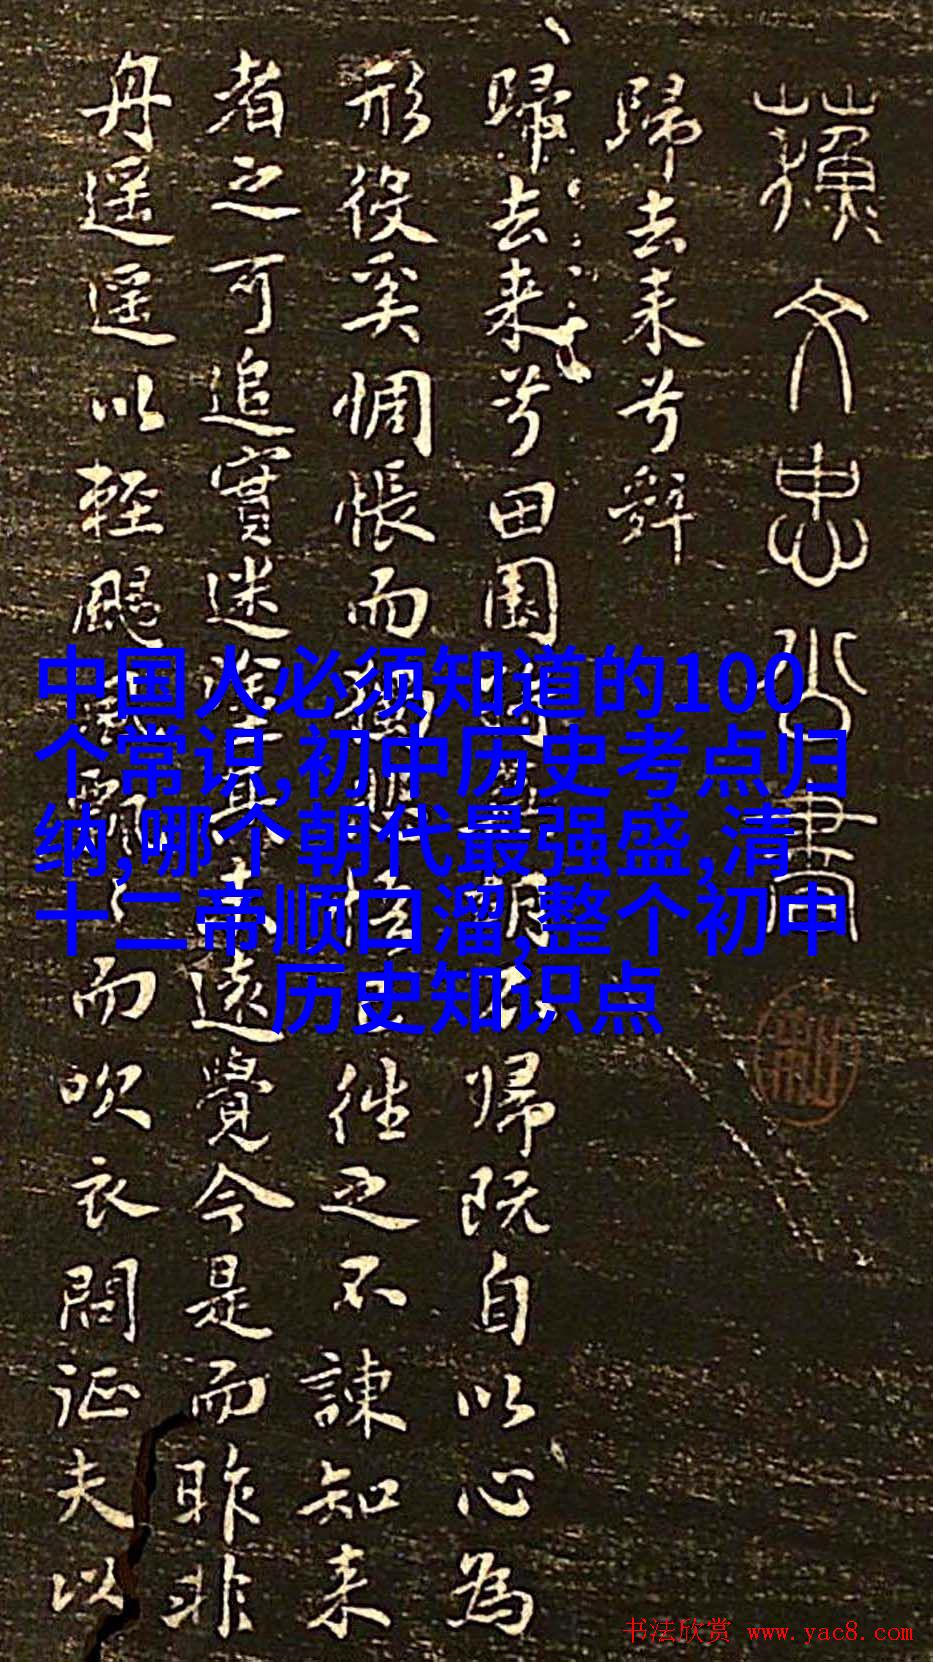 蘇文忠公書
歸去来兮辭
歸去来兮田園不歸既自以心為
形役奚惆悵而往之不諫知来
者之可追實迷遠覺今是而昨非
舟遥遥以輕颺而吹衣問征夫以
中国人必须知道的100
个常识,初中历史考点归
纳,哪个朝代最强盛,清
十二帝顺口溜,整个初中
历史知识点
书法欣赏 www.yac8.com